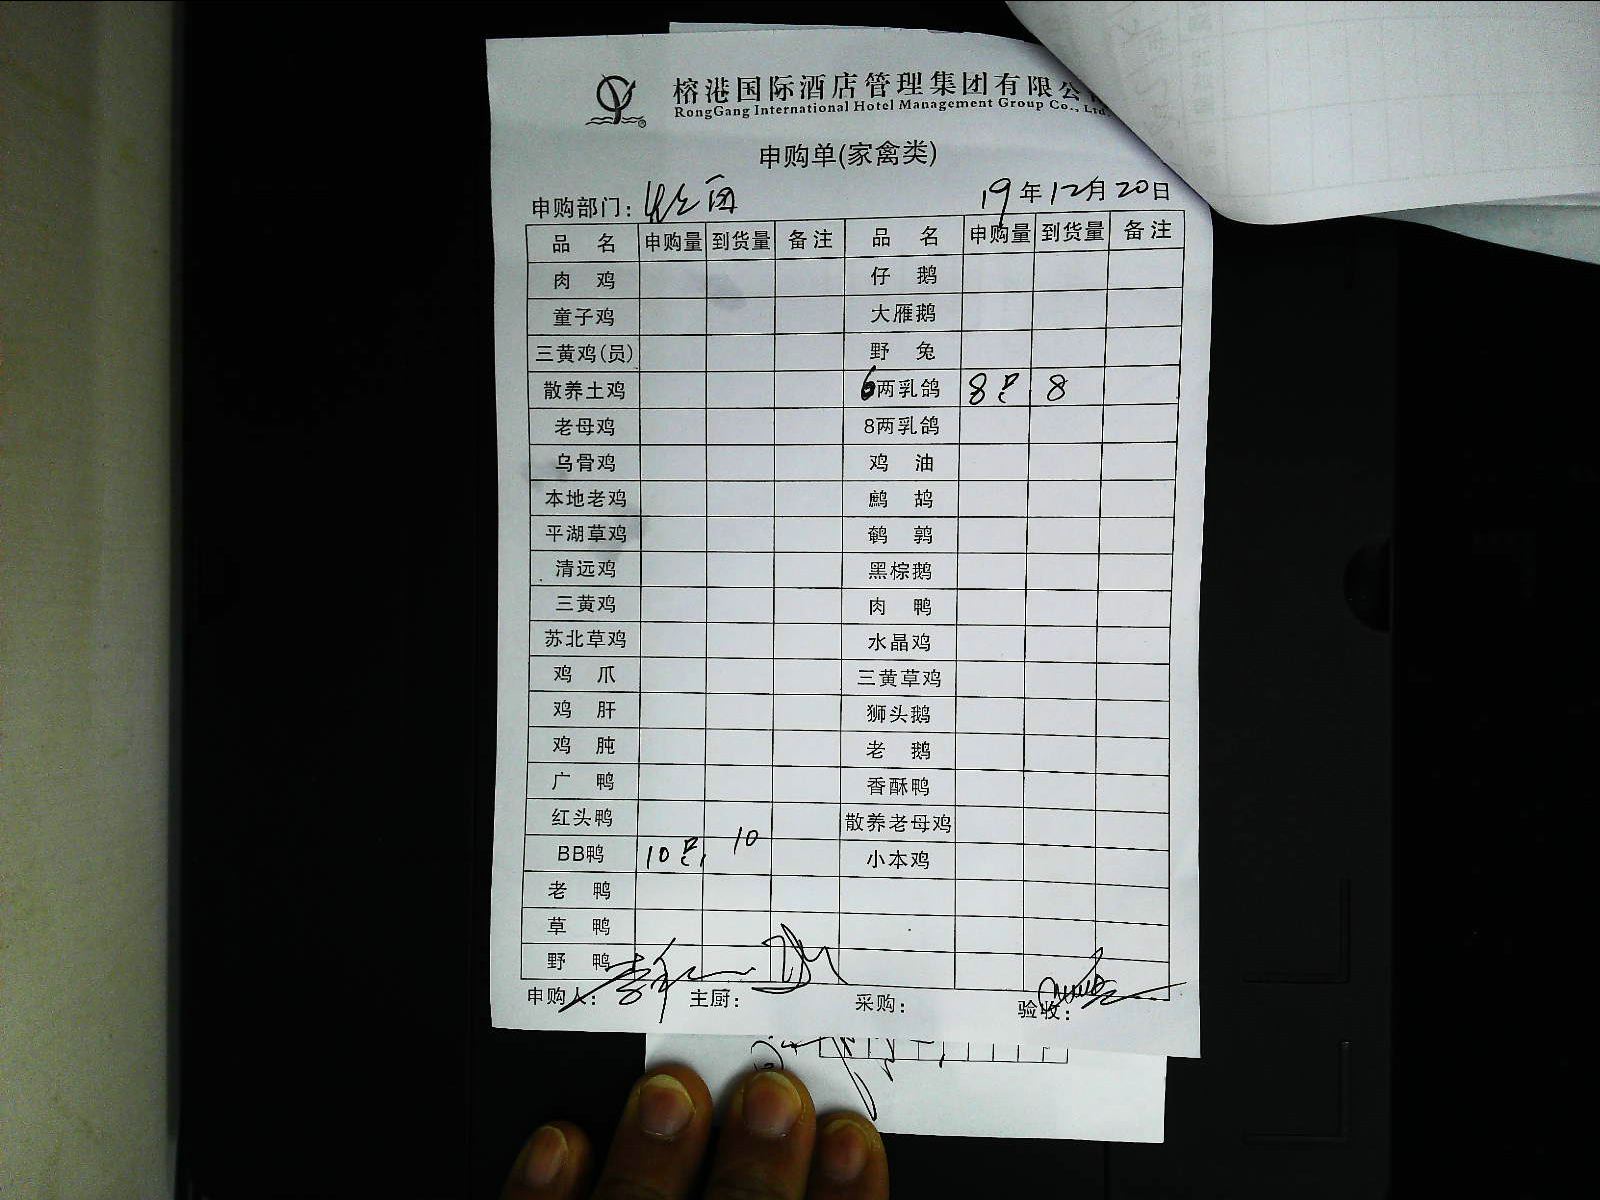 榕港国际酒店管理集团有限公
RongGang International Hotel Management Group Co., Ltd.
申购单(家禽类)
申购部门： 19年12月20日
品 名 申购量 到货量 备注 品 名 申购量 到货量 备注
肉 鸡 仔 鹅
童子鸡 大雁鹅
三黄鸡(员) 野 兔
散养土鸡 6两乳鸽 8只 8
老母鸡 8两乳鸽
乌骨鸡 鸡 油
本地老鸡 鹧 鸪
平湖草鸡 鹌 鹑
清远鸡 黑棕鹅
三黄鸡 肉 鸭
苏北草鸡 水晶鸡
鸡 爪 三黄草鸡
鸡 肝 狮头鹅
鸡 肫 老 鹅
广 鸭 香酥鸭
红头鸭 散养老母鸡
BB鸭 10只 10 小本鸡
老 鸭
草 鸭
野 鸭
申购人： 主厨： 采购： 验收：